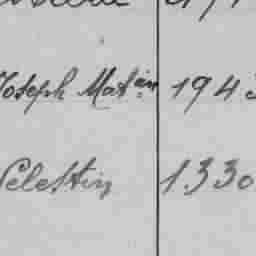 Joseph Mat:in 1943
Celestin 1330